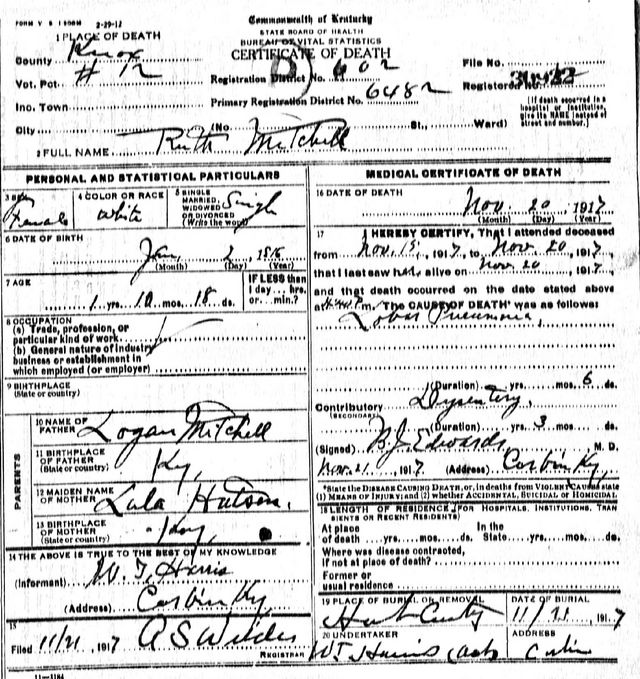 FORM V S 1 2-29-12
Commonwealth of Kentucky
STATE BOARD OF HEALTH
BUREAU OF VITAL STATISTICS
CERTIFICATE OF DEATH
1 PLACE OF DEATH
County Knox
Vot. Pct # 12
Inc. Town
City
Registration District No. 602
Primary Registration District No. 6482
File No.
Registered No.
(If death occurred in a hospital or institution, give its NAME instead of street and number.)
(No. St., Ward)
2 FULL NAME Ruth Mitchell
PERSONAL AND STATISTICAL PARTICULARS
3 SEX Female
4 COLOR OR RACE White
5 SINGLE MARRIED, WIDOWED OR DIVORCED (Write the word) Single
6 DATE OF BIRTH
Jan 2, 1916
(Month) (Day) (Year)
7 AGE
1 yrs. 10 mos. 18 ds.
IF LESS than 1 day... hrs. or... min.?
8 OCCUPATION
(a) Trade, profession, or particular kind of work
(b) General nature of industry business or establishment in which employed (or employer)
9 BIRTHPLACE
(State or country)
PARENTS
10 NAME OF FATHER Logan Mitchell
11 BIRTHPLACE OF FATHER (State or country) Ky,
12 MAIDEN NAME OF MOTHER Lula Hutson.
13 BIRTHPLACE OF MOTHER (State or country) Ky,
14 THE ABOVE IS TRUE TO THE BEST OF MY KNOWLEDGE
(Informant) W. T. Harris
(Address) Corbin Ky,
15
Filed 11/21, 1917 A S Wilder
REGISTRAR
11-1184
MEDICAL CERTIFICATE OF DEATH
16 DATE OF DEATH
Nov. 20, 1917
(Month) (Day) (Year)
17 I HEREBY CERTIFY, That I attended deceased
from Nov. 15, 1917, to Nov. 20, 1917,
that I last saw her alive on Nov. 20, 1917,
and that death occurred on the date stated above
at m. The CAUSE OF DEATH was as follows:
Lobar Pneumonia,
(Duration) yrs. mos. 6 ds.
Contributory (SECONDARY) Dysentery,
(Duration) yrs. 3 mos. ds.
(Signed) B. J. Edwards M. D.
Nov. 21, 1917 (Address) Corbin Ky,
*State the DISEASE CAUSING DEATH, or, in deaths from VIOLENT CAUSES state (1) MEANS OF INJURY; and (2) whether ACCIDENTAL, SUICIDAL or HOMICIDAL
18 LENGTH OF RESIDENCE (FOR HOSPITALS, INSTITUTIONS, TRANSIENTS OR RECENT RESIDENTS)
At place of death yrs. mos. ds. In the State yrs. mos. ds.
Where was disease contracted, if not at place of death?
Former or usual residence
19 PLACE OF BURIAL OR REMOVAL
DATE OF BURIAL
11/21, 1917
20 UNDERTAKER
W T Harris
ADDRESS
Corbin